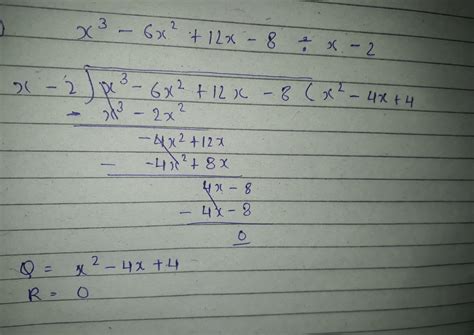 )
x³ - 6x² + 12x - 8 ÷ x - 2
x - 2) x³ - 6x² + 12x - 8 ( x² - 4x + 4
- x³ - 2x²
-4x² + 12x
- -4x² + 8x
4x - 8
- 4x - 8
0
Q = x² - 4x + 4
R = 0